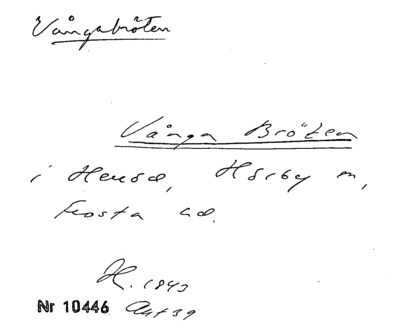 Vångabröten
Vånga Bröten
i Heused, Hörby sn,
Frosta hd.
H. 1843
Nr 10446 Akt 39